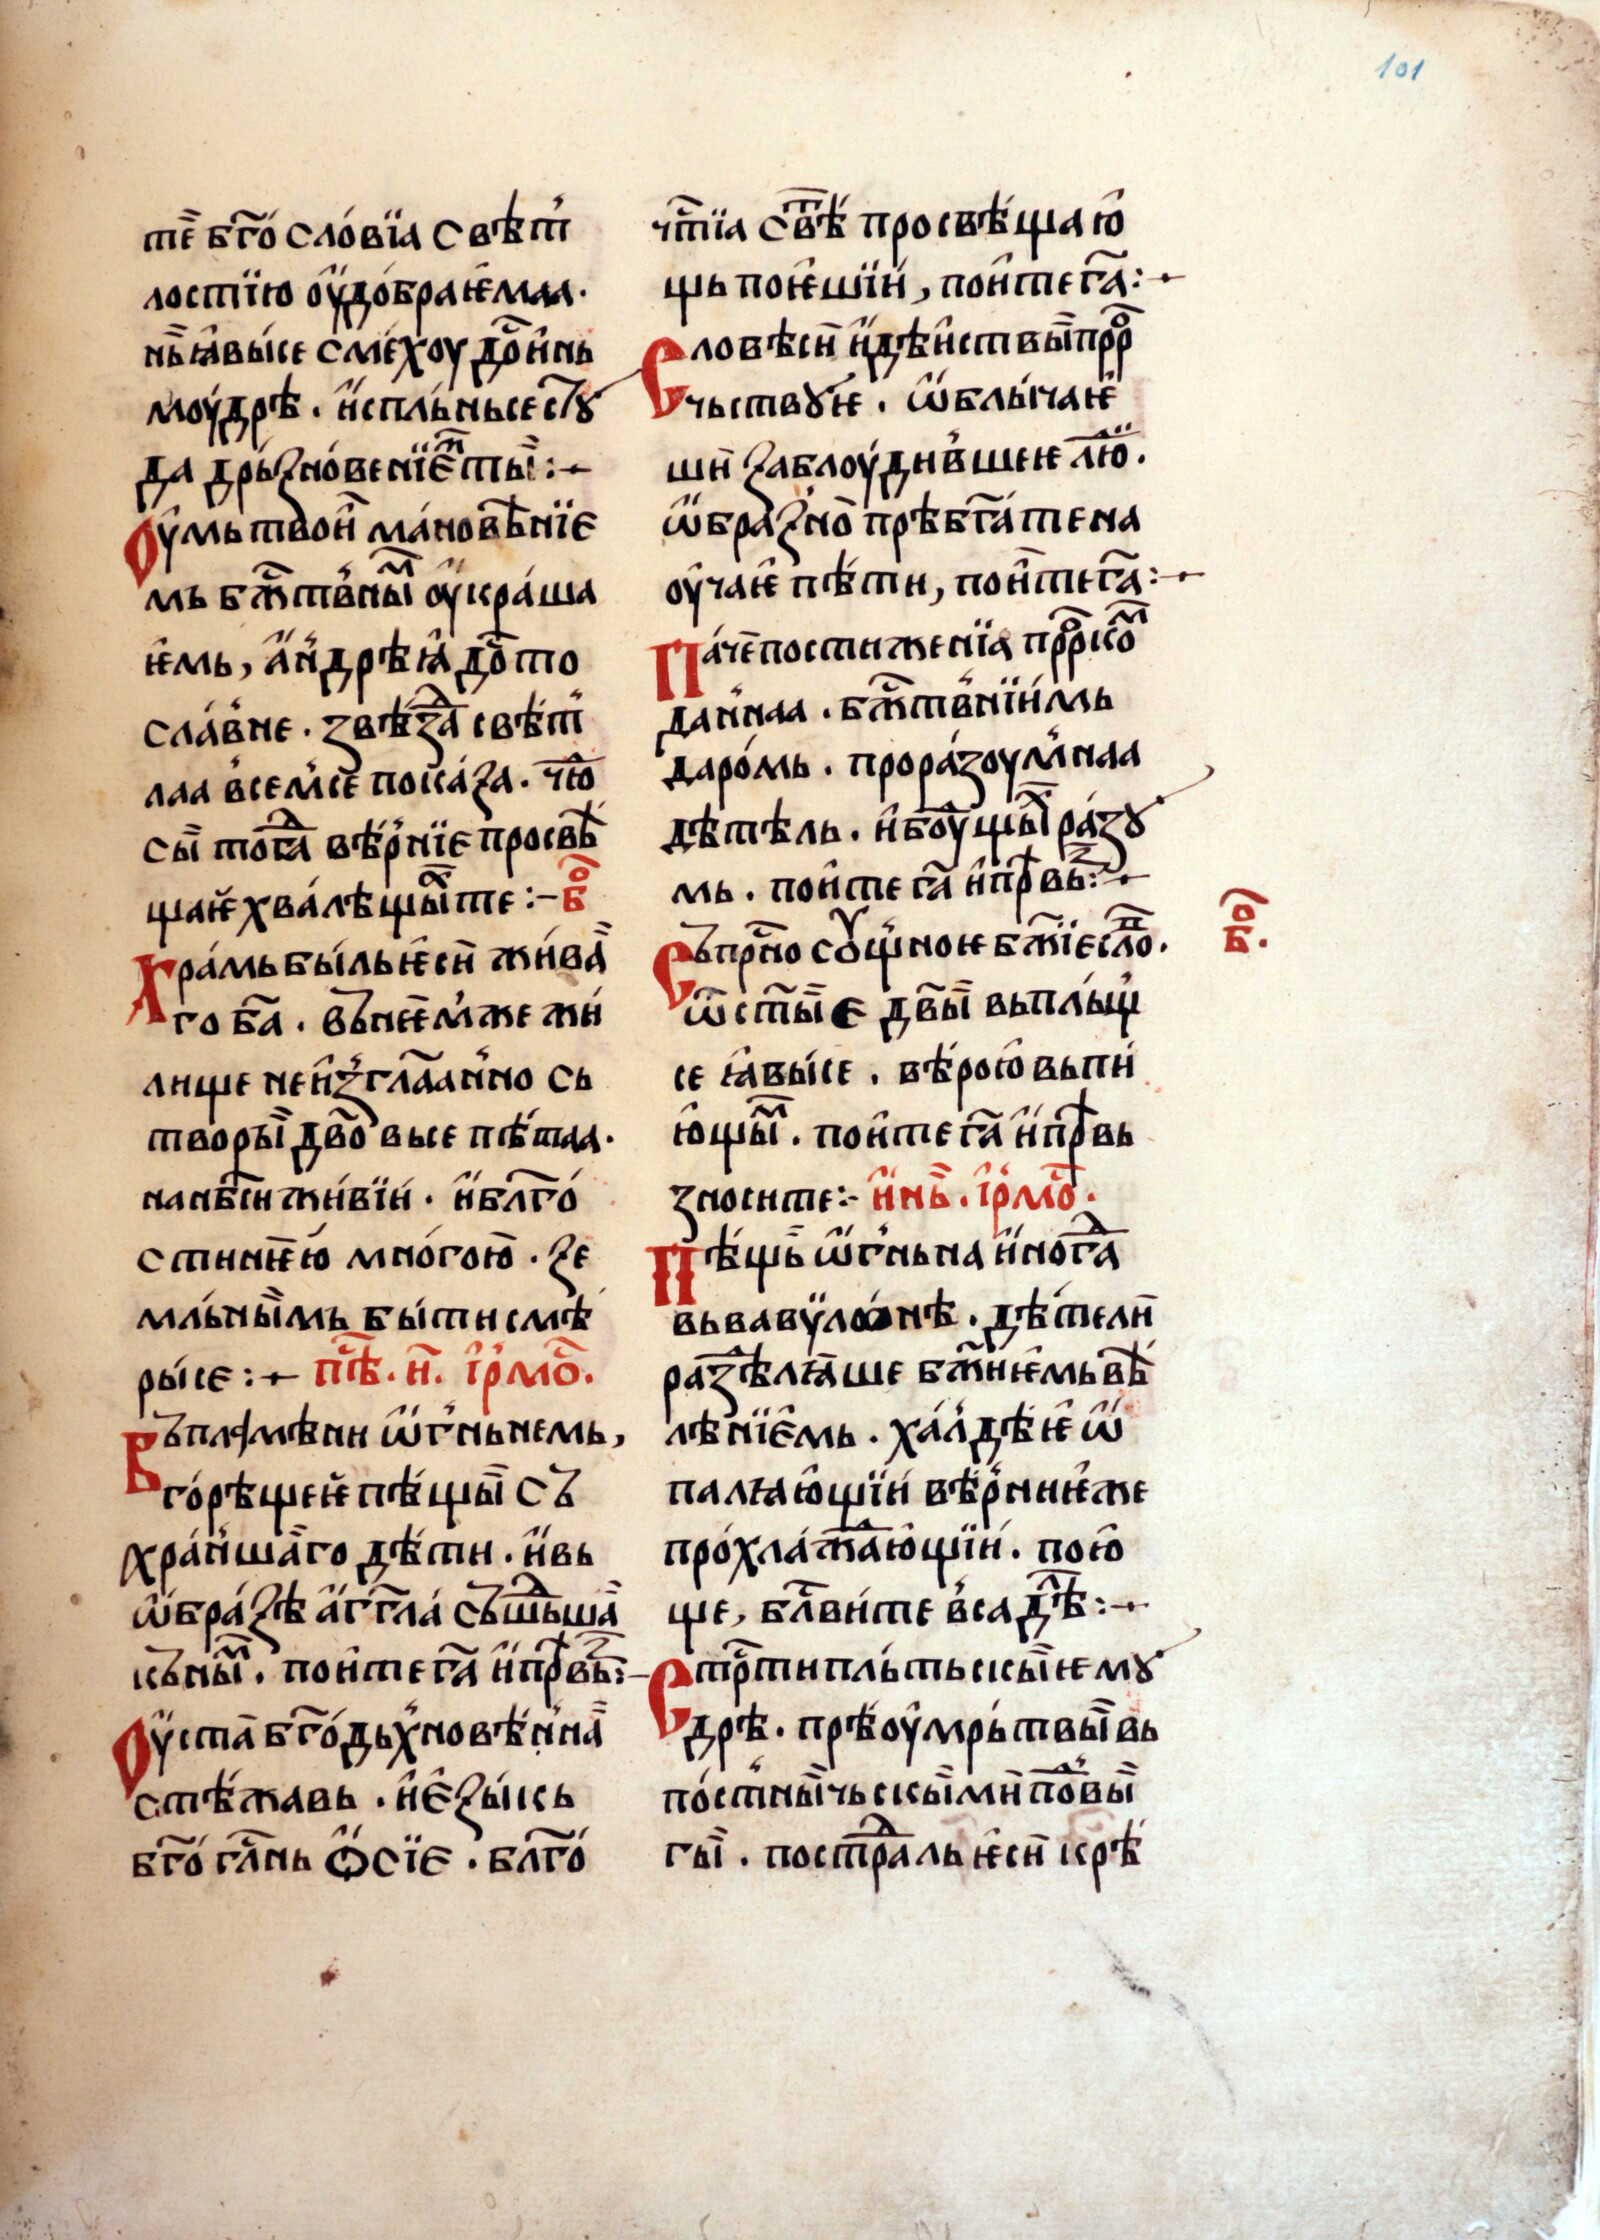 101
те̄ бг҃осло́вїа свѣт҆
лостїю оу҆до́браѥмаа.
нь̄ ꙗ҆вы́се смѣ́хоу до҃и҆нь
моу́дрѣ. и҆спль́ньсе ст҃ꙋ
да дрь́ꙁнове́нїє҆м ты̏:~
Оу҆мь твои̏ ма́новѣ̏нїе
мь бж҃тв҆ны̏м оу҆кра́ша
ѥмь, а҆н҆дрѣꙗ҆ до҃то
сла́в҆не. ꙁвѣ́ꙁда свѣ́т҆
лаа в҆сем҆се пока́ꙁа. чт҃ою
сы̏ тог҃да вѣ́р҆нїе просвѣ̏
щаѥ хва́лѣщы̏х те:~ бо҃
Хра́мь бы́ль ѥ҆си̏ жи́ва̏
го ба҃. въ̏нѥ̏м҆же жи́
лище неи҆ꙁ҆гл҃аан҆но сь
творы̏ дв҃о вьсе пѣ́таа.
на нб҃си жи́вїи. и҆ бл҃го́
стиню̏ мно́гою. ꙁе
мль́ны̏мь бы́ти смѣ̏
ры́се:~ пѣ҃. и҃. і҆р҆мо҃.
Въ пла́мѣни ѡ҆г҆ньнемь,
го́рѣщеѥ пѣ́щы̏ съ
хра́н҆ша̏го дѣ́ти. и҆ вь
ѡ҆бра́ꙁѣ а҆г҃гла съ̏ше̏дьша̏
къ̏ны̏м. пои҆те га҃ и҆ прѣвьꙁ:~
Оу҆ста̏ бг҃о́дьх҆новѣ́н҆на̏
стѣ́жавь. и҆ є҆ꙁы́кь
бг҃о́ гл҃нь Ѻ҆сїе. бл҃го́
чт҃їа свѣ҃т просвѣ́щаю҆
щь поѥ́шїи, пои҆те га҃:~
Словѣсн̏ и҆ дѣ́иствы̏ прр҃о
чьствꙋѥ. ѡ҆блы́чаѥ̏
ши̏ ꙁаблоу́див҆шеѥ лю҃д.
ѡ҆браꙁ҆но̏ прѣбг҃а́те на
оу҆чаѥ̏ пѣ́ти, пои҆те га҃:~
Па́че̏ постижені́а прр҃оком
дан҆наа. бж҃тв҆нїимь
даро́мь. прора́ꙁоум҆наа
дѣ́тѣль. и҆ боу҆щы̏х ра́ꙁꙋ
мь. пои҆те га҃ и҆ прѣвьꙁ:~
Съ̏прн҃о соу́щ҆ноѥ бж҃їе сл҃во.
ѡ҃ ст҃ы̏е дв҃ы̏ вьплы́щ҆
се ꙗ҆вы́се. вѣ́рою вьпи́
ю҆щы̏м. пои҆те га҃ и҆ прѣвь
ꙁносите:~ и҆нь̏. і҆р҆мо҃с.
Пѣ́щь̏ ѡ҆г҆ньна и҆ног҃да
вь вавѷло́нѣ. дѣ́тели̏
раꙁдѣлꙗ҆ше бж҃иѥ҆мь вѣ̏
лѣнїє҆мь. ха́л҆дѣѥ ѡ҆
палꙗю҆щїи вѣ́р҆ниѥ҆же
про́хла́ждаю҆щїи. пою҆
ще, бл҃ви́те в҆са дѣ҃ла:~
Стр҃ти пль́тьскы̏ѥ мꙋ
дрѣ. прѣ̏оу҆мрь́твы̏ вь
по́ст҆ны̏чьскы̏ми̏ по҃двы̏
гы̏. постр҃адаль ѥ҆си̏ крѣ́
бо҃.